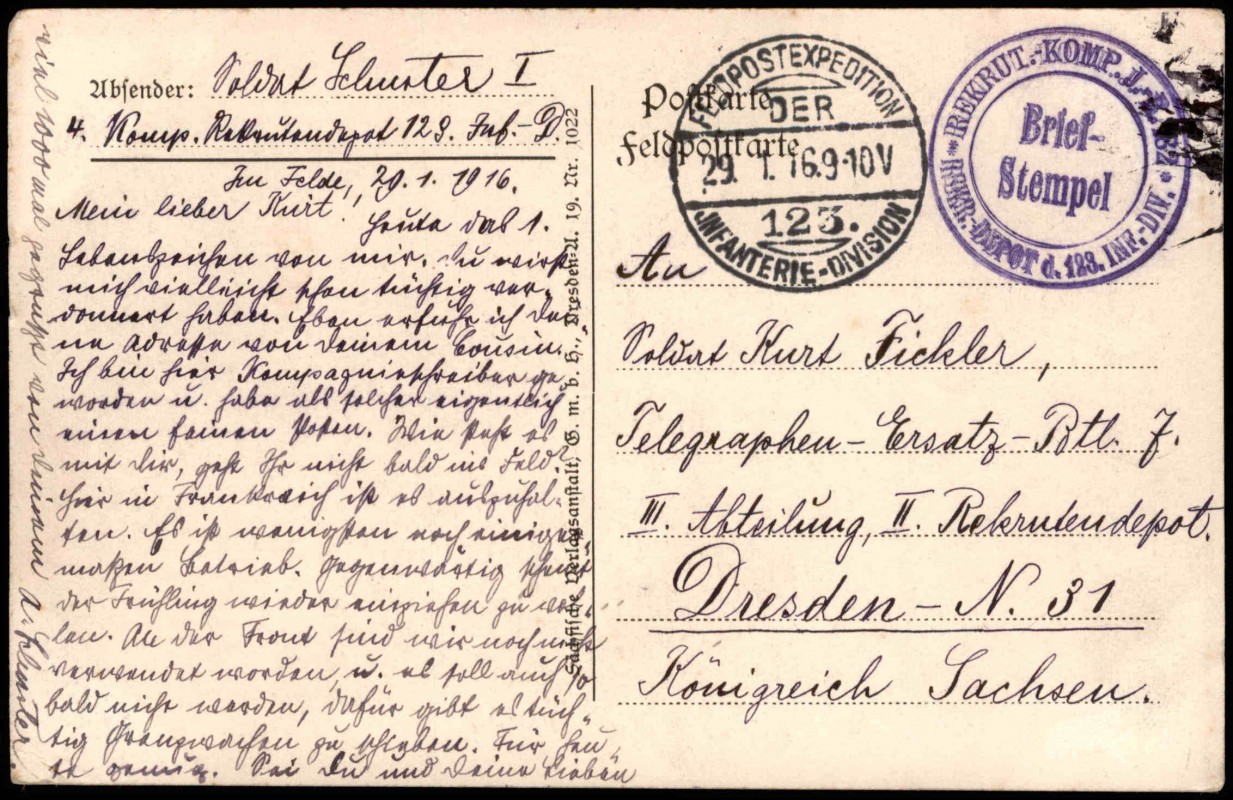 Absender: Soldat Schuster I
4. Komp. Rekrutendepot 123. Inf.-D.
Im Felde, 29.1.1916.
Mein lieber Kurt!
Heute das 1.
Lebenszeichen von mir. Du wirst
mich vielleicht schon tüchtig ver-
donnert haben. Eben erfuhr ich dei-
ne Adresse von deinem Cousin.
Ich bin hier Kompagnieschreiber ge-
worden u. habe als solcher eigentlich
einen feinen Posten. Wie steht es
mit dir, geht Ihr nicht bald ins Feld?
Hier in Frankreich ist es auszuhal-
ten. Es ist wenigsten noch einiger-
maßen Betrieb. Gegenwärtig scheint
der Frühling wieder einziehen zu wol-
len. An der Front sind wir noch nicht
verwendet worden, u. es soll auch so
bald nicht werden, dafür gibt es tüch-
tig Grenzwachen zu schieben. Für heu-
te genug. Sei du und deine Lieben
viel 1000 mal gegrüßt von deinem A. Schuster.
Sächsische Verlagsanstalt, G. m. b. H., Dresden-A. 19. Nr. 1022
Postkarte
Feldpostkarte
FELDPOSTEXPEDITION
DER
29. 1. 16. 9-10V
123.
INFANTERIE-DIVISION
REKRUT.-KOMP. J.-R. 182
Brief-
Stempel
REKR.-DEPOT d. 123. INF.-DIV.
An
Soldat Kurt Fickler,
Telegraphen-Ersatz-Btl. 7.
III. Abteilung, II. Rekrutendepot.
Dresden-N. 31
Königreich Sachsen.